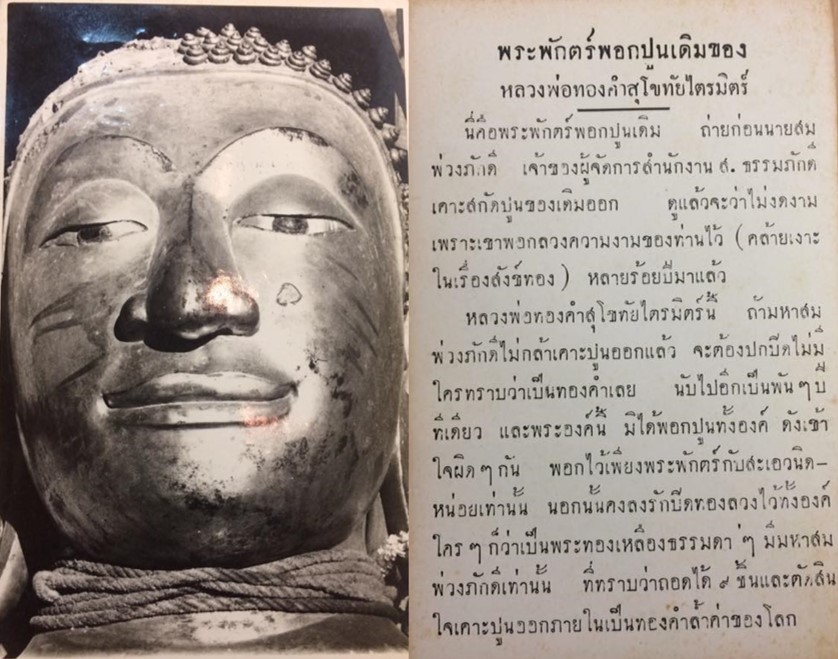 พระพักตร์พอกปูนเดิมของ
หลวงพ่อทองคำสุโขทัยไตรมิตร์
นี่คือพระพักตร์พอกปูนเดิม ถ่ายก่อนนายสม
พ่วงภักดี เจ้าของผู้จัดการสำนักงาน ส. ธรรมภักดี
เคาะสกัดปูนของเดิมออก ดูแล้วจะว่าไม่งดงาม
เพราะเขาพอกลวงความงามของท่านไว้ (คล้ายเงาะ
ในเรื่องสังข์ทอง) หลายร้อยปีมาแล้ว
หลวงพ่อทองคำสุโขทัยไตรมิตร์นี้ ถ้ามหาสม
พ่วงภักดีไม่กล้าเคาะปูนออกแล้ว จะต้องปกปิดไม่มี
ใครทราบว่าเป็นทองคำเลย นับไปอีกเป็นพัน ๆ ปี
ทีเดียว และพระองค์นี้ มิได้พอกปูนทั้งองค์ ดังเข้า
ใจผิด ๆ กัน พอกไว้เพียงพระพักตร์กับสะเอวนิด–
หน่อยเท่านั้น นอกนั้นคงลงรักปิดทองลวงไว้ทั้งองค์
ใคร ๆ ก็ว่าเป็นพระทองเหลืองธรรมดา ๆ มีมหาสม
พ่วงภักดีเท่านั้น ที่ทราบว่าถอดได้ ๙ ชิ้นและตัดสิน
ใจเคาะปูนออกภายในเป็นทองคำล้ำค่าของโลก